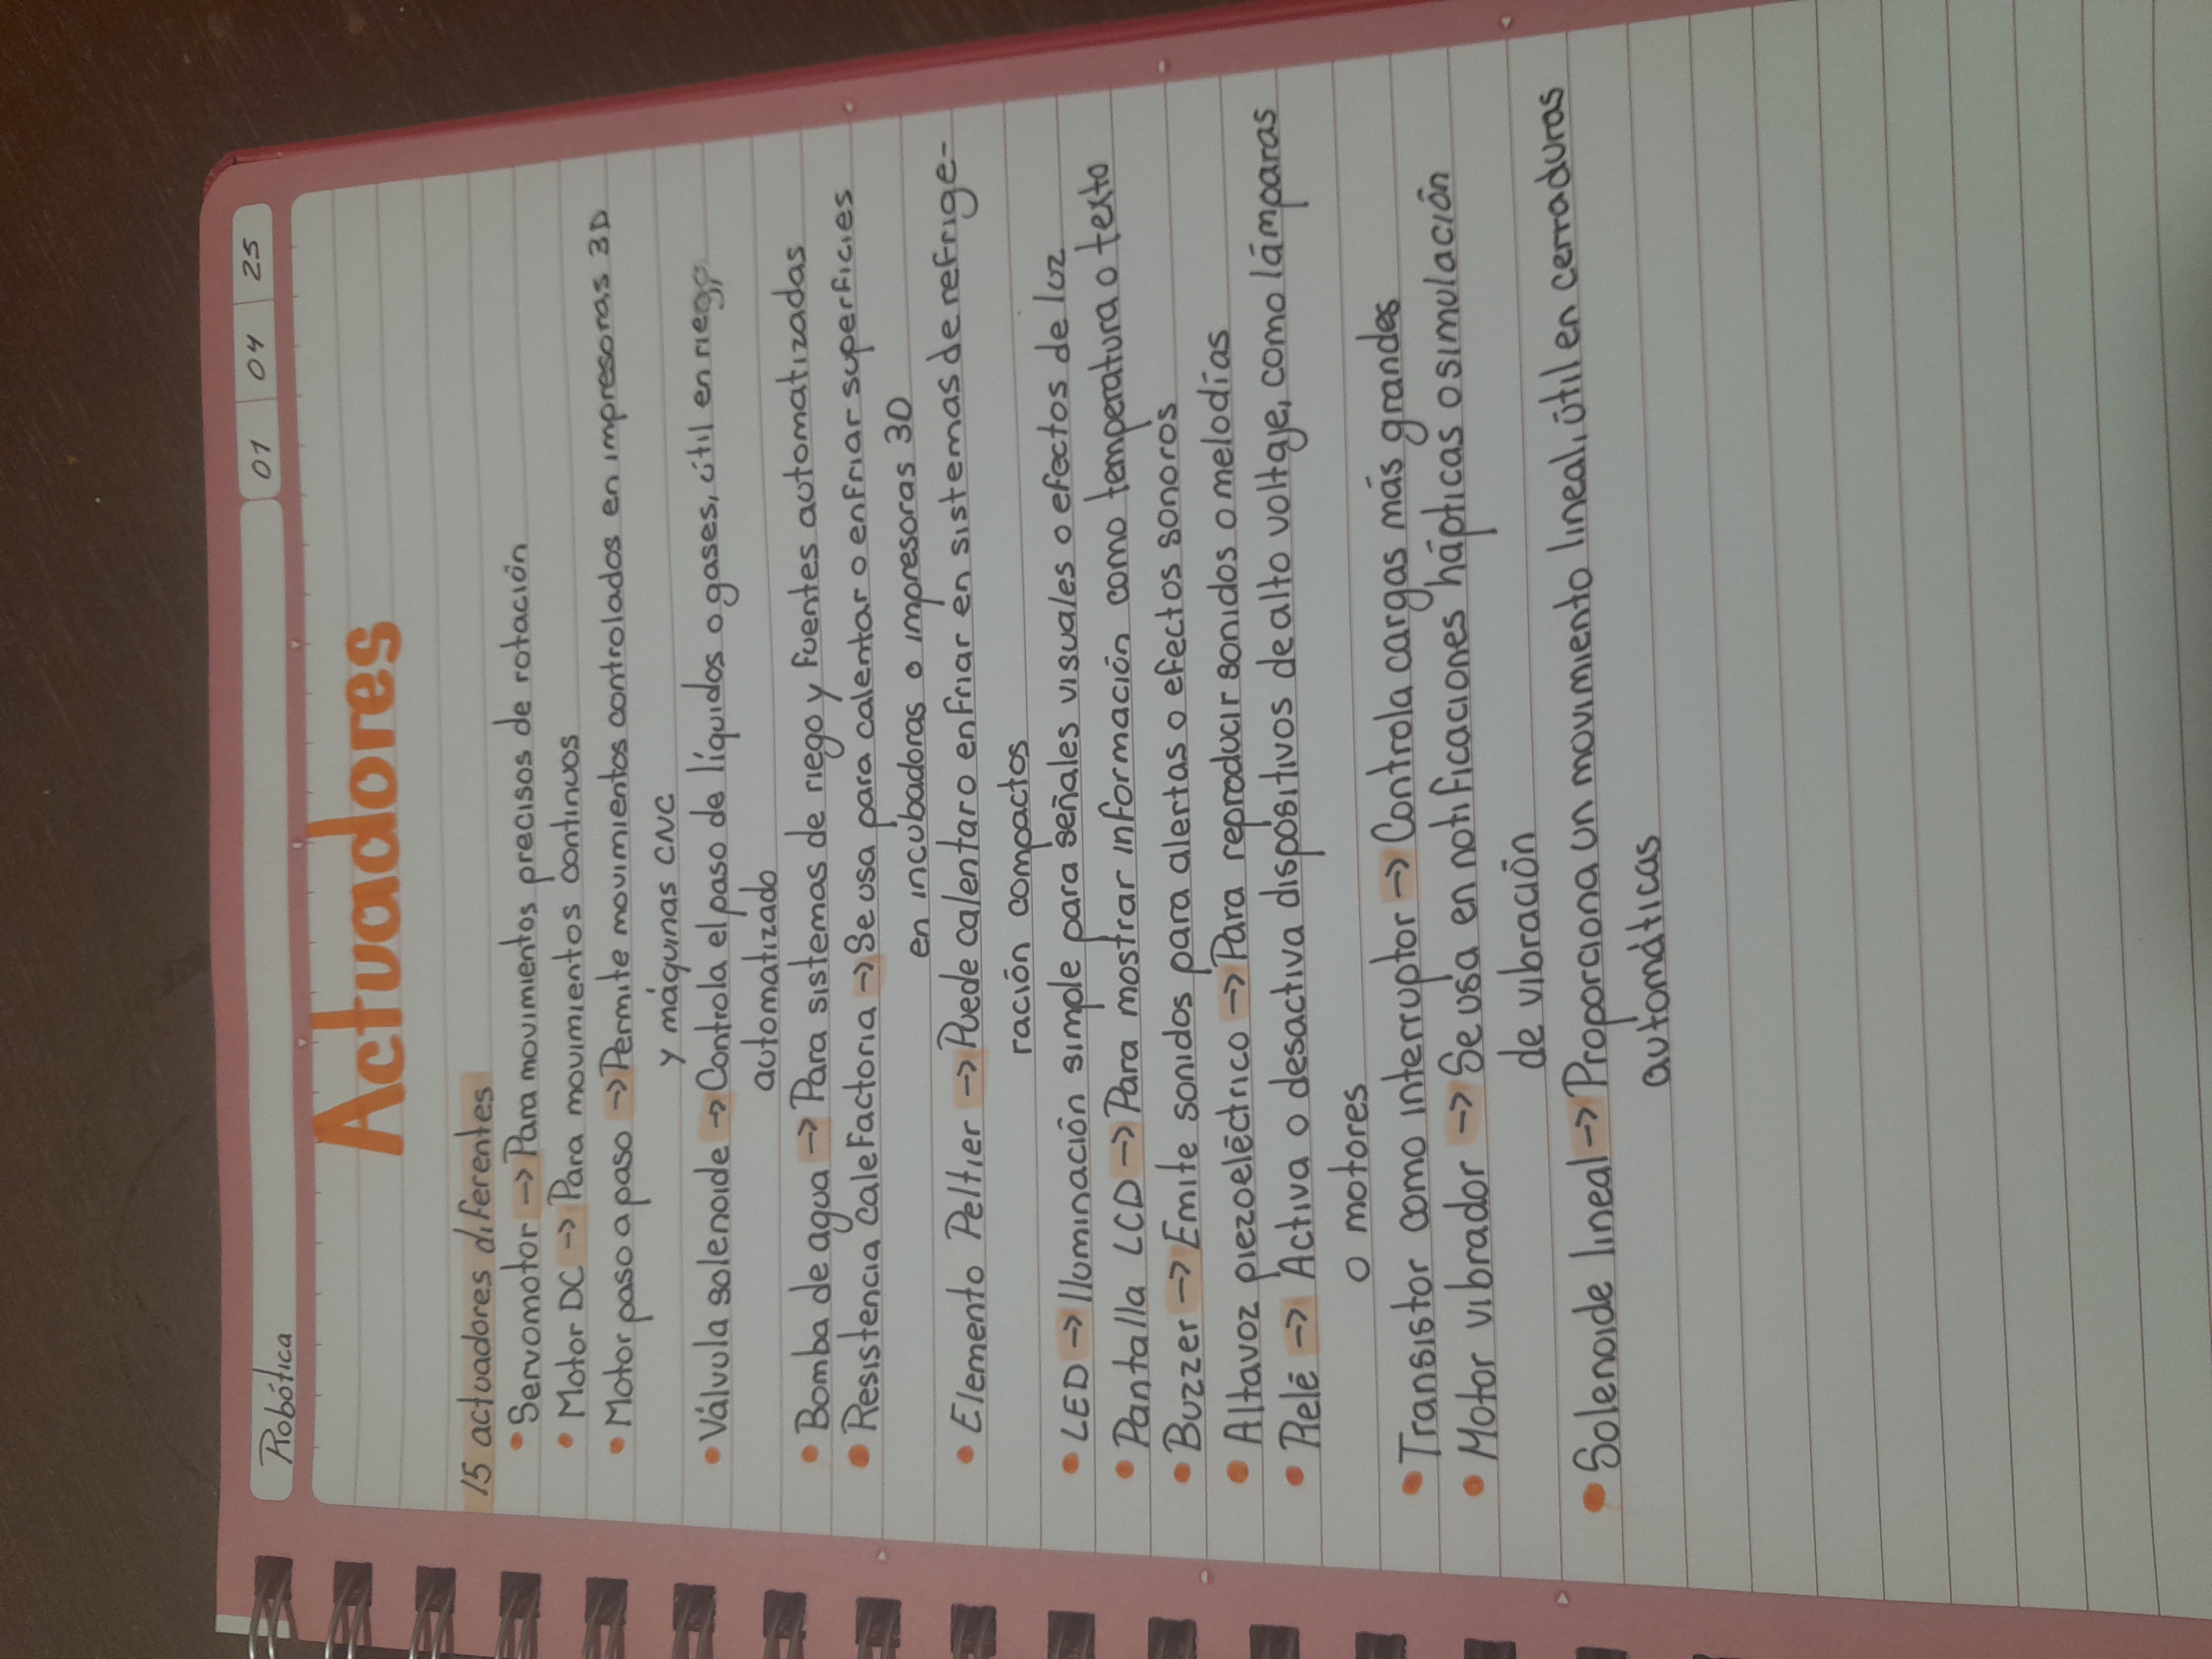 Robótica
01 04 25
Actuadores
15 actuadores diferentes
• Servomotor → Para movimientos precisos de rotación
• Motor DC → Para movimientos continuos
• Motor paso a paso → Permite movimientos controlados en impresoras 3D
y máquinas CNC
• Válvula solenoide → Controla el paso de líquidos o gases, útil en riego
automatizado
• Bomba de agua → Para sistemas de riego y fuentes automatizadas
• Resistencia calefactoria → Se usa para calentar o enfriar superficies
en incubadoras o impresoras 3D
• Elemento Peltier → Puede calentar o enfriar en sistemas de refrige-
ración compactos
• LED → Iluminación simple para señales visuales o efectos de luz
• Pantalla LCD → Para mostrar información como temperatura o texto
• Buzzer → Emite sonidos para alertas o efectos sonoros
• Altavoz piezoeléctrico → Para reproducir sonidos o melodías
• Relé → Activa o desactiva dispositivos de alto voltaje, como lámparas
o motores
• Transistor como interruptor → Controla cargas más grandes
• Motor vibrador → Se usa en notificaciones hápticas o simulación
de vibración
• Solenoide lineal → Proporciona un movimiento lineal, útil en cerraduras
automáticas